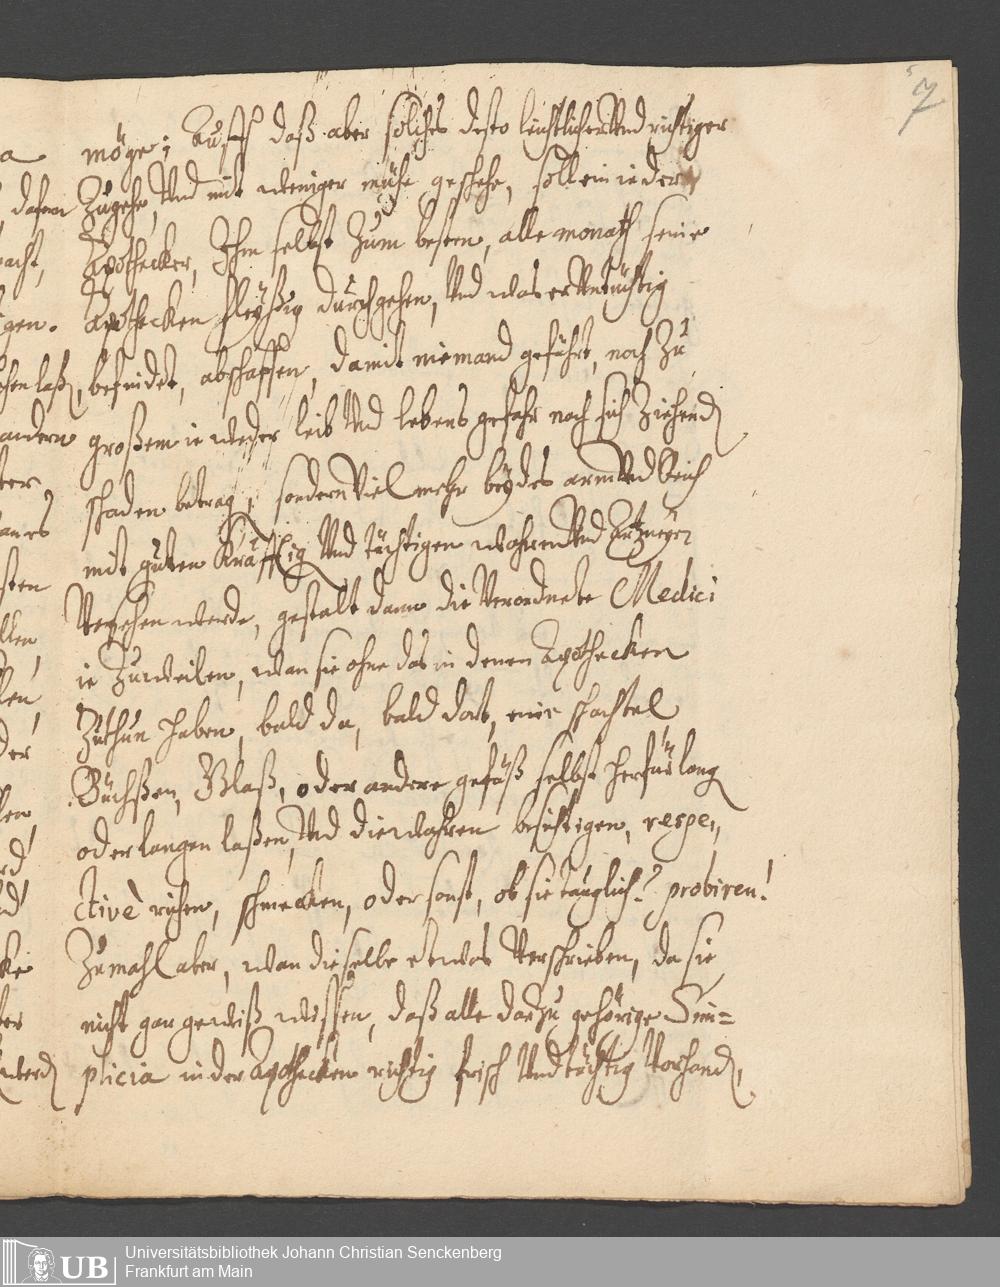 7
möge; Aufs daß aber solches desto leichtlicher Und richtiger
Zugehe, Und mit weniger mühe geschehe, soll ein ieder
Apothecker, Ihm selbst Zum besten, alle monath seine
Apothecken fleyßig durchgehen, Und was er Untüchtig
befindet, abschaffen, damit niemand gefährt, noch Zu
großem ie weder leib Und lebens gefahr nach sich Ziehend
schaden betrag, sondern Viel mehr beydes arm Und Reich
mit guten Kräfftig Und tüchtigen wahren Und Artzneyen
Versehen werde, gestalt dann die Verordnete Medici
ie Zuweilen, wan sie ohne das in denen Apothecken
Zuthun haben, bald da, bald dort, eine schachtel
Büchßen, Glaß, oder andere gefäß selbst herfür lang
oder langen laßen, Und die wahren besichtigen, respe„
ctivè richen, schmecken, oder sonst, ob sie tauglich? probiren!
Zumahl aber, wan dieselbe etwas Verschrieben, da sie
nicht gar gewiß wissen, daß alle darzu gehörige Sim=
plicia in der Apothecken richtig frisch Und tüchtig Vorhand,
UB
Universitätsbibliothek Johann Christian Senckenberg
Frankfurt am Main